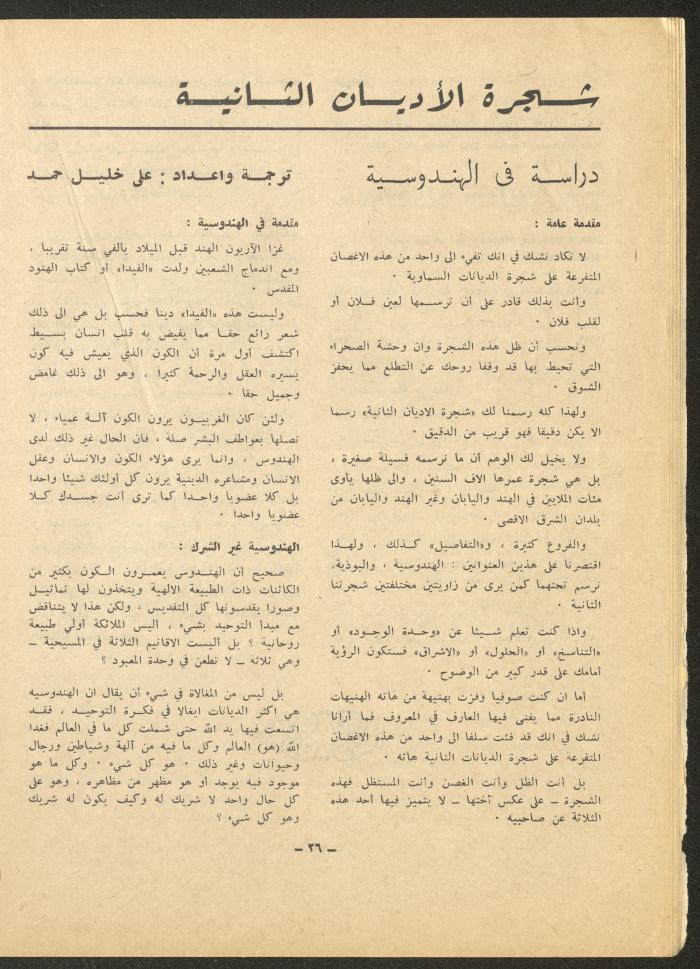 شجرة الأديان الثانية
دراسة في الهندوسية
ترجمة واعداد : علي خليل حمد
مقدمة عامة :
لا نكاد نشك في انك تفيء الى واحد من هذه الاغصان
المتفرعة على شجرة الديانات السماوية ٠
وأنت بذلك قادر على أن ترسمها لعين فلان أو
لقلب فلان ٠
ونحسب أن ظل هذه الشجرة وان وحشة الصحراء
التي تحيط بها قد وقفا روحك عن التطلع مما يحفز
الشوق ٠
ولهذا كله رسمنا لك «شجرة الاديان الثانية» رسما
الا يكن دقيقا فهو قريب من الدقيق ٠
ولا يخيل لك الوهم أن ما نرسمه فسيلة صغيرة ،
بل هي شجرة عمرها الاف السنين ، والى ظلها يأوى
مئات الملايين في الهند واليابان وغير الهند واليابان من
بلدان الشرق الاقصى ٠
والفروع كثيرة ، و«التفاصيل» كذلك ، ولهذا
اقتصرنا على هذين العنوانين : الهندوسية ، والبوذية،
نرسم تحتهما كمن يرى من زاويتين مختلفتين شجرتنا
الثانية ٠
واذا كنت تعلم شيئا عن «وحدة الوجود» أو
«التناسخ» أو «الحلول» أو «الاشراق» فستكون الرؤية
أمامك على قدر كبير من الوضوح ٠
أما ان كنت صوفيا وفزت بهنيهة من هاته الهنيهات
النادرة مما يفنى فيها العارف في المعروف فما أرانا
نشك في انك قد فئت سلفا الى واحد من هذه الاغصان
المتفرعة على شجرة الديانات الثانية هاته ٠
بل أنت الظل وأنت الغصن وأنت المستظل فهذه
الشجرة ــ على عكس أختها ــ لا يتميز فيها أحد هذه
الثلاثة عن صاحبيه ٠
مقدمة في الهندوسية :
غزا الآريون الهند قبل الميلاد بالفي سنة تقريبا ،
ومع اندماج الشعبين ولدت «الفيدا» أو كتاب الهنود
المقدس ٠
وليست هذه «الفيدا» دينا فحسب بل هي الى ذلك
شعر رائع حقا مما يفيض به قلب انسان بسيط
اكتشف أول مرة أن الكون الذي يعيش فيه كون
يسيره العقل والرحمة كثيرا ، وهو الى ذلك غامض
وجميل حقا ٠
ولئن كان الغربيون يرون الكون آلة عمياء ، لا
تصلها بعواطف البشر صلة ، فان الحال غير ذلك لدى
الهندوس ، وانما يرى هؤلاء الكون والانسان وعقل
الانسان ومشاعره الدينية يرون كل أولئك شيئا واحدا
بل كلا عضويا واحدا كما ترى أنت جسدك كلا
عضويا واحدا ٠
الهندوسية غير الشرك :
صحيح أن الهندوس يعمرون الكون بكثير من
الكائنات ذات الطبيعة الالهية ويتخذون لها تماثيل
وصورا يقدسونها كل التقديس ، ولكن هذا لا يتناقض
مع مبدأ التوحيد بشيء ، أليس الملائكة أولي طبيعة
روحانية ؟ بل أليست الاقانيم الثلاثة في المسيحية ــ
وهي ثلاثة ــ لا تطعن في وحدة المعبود ؟
بل ليس من المغالاة في شيء أن يقال ان الهندوسيه
هي اكثر الديانات ايغالا في فكرة التوحيد ، فقد
اتسعت فيها يد الله حتى شملت كل ما في العالم فغدا
الله (هو) العالم وكل ما فيه من آلهة وشياطين ورجال
وحيوانات وغير ذلك ٠ هو كل شيء ٠ وكل ما هو
موجود فيه يوجد أو هو مظهر من مظاهره ، وهو على
كل حال واحد لا شريك له وكيف يكون له شريك
وهو كل شيء ؟
ــ ٢٦ ــ